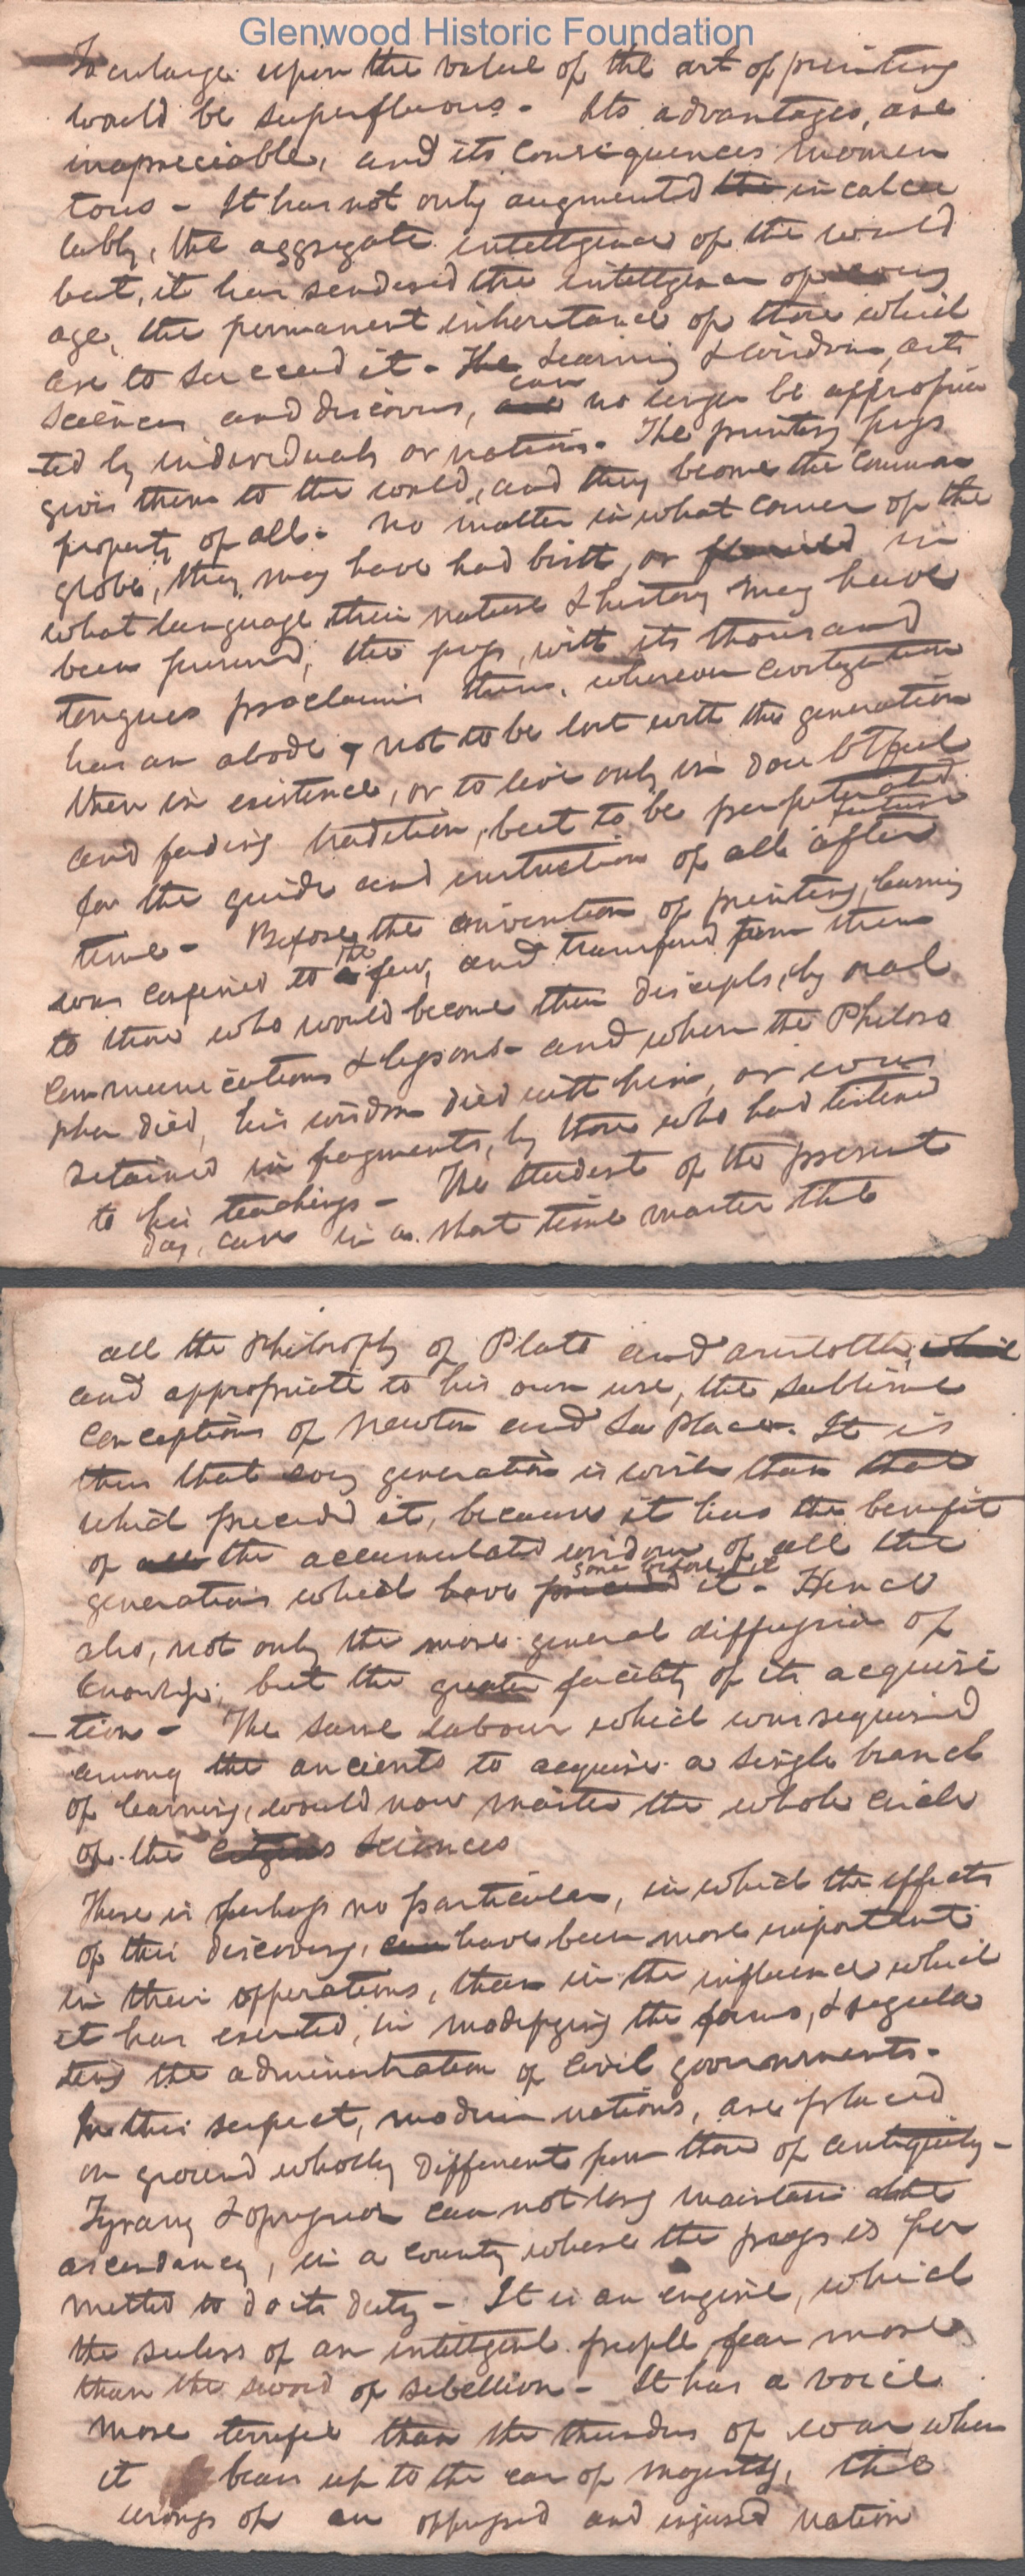 Glenwood Historic Foundation
To enlarge upon the value of the art of printing
would be superfluous - Its advantages, are
inapreciable, and its consequences momen
tous - It has not only augmented the incalcu
lably, the aggregate intelligence of the world
but, it has rendered the intelligence of every
age, the permanent inheritance of those which
are to succeed it - The learning & wisdom, arts
can
sciences and discoveries, are no longer be appropria
-ted by individuals or nations. The printing press
gives them to the world, and they become the common
property of all. No matter in what corner of the
globe, they may have had birth, or in
what language their nature & history may have
been penned, the press, with its thousand
tongues proclaims them, wherever civilization
has an abode, not to be lost with the generation
then in existence, or to live only in doubtful
and fading tradition, but to be perpetuated
future
for the guide and instruction of all after
time - Before the invention of printing, learning
the
was confined to a few, and transferred from them
to those who would become their disciples, by oral
communications & lessons - and when the Philoso
pher died, his wisdom died with him, or was
retained in fragments, by those who had listened
to his teachings - The student of the present
day, can in a short time master the
all the Philosophy of Plato and Aristotle, while
and appropriate to his own use, the sublime
conceptions of Newton and La Place. It is
thus that every generation is wiser than that
which preceded it, because it has the benefit
of all the accumulated wisdom of all the
gone before it
generations which have preceded it - Hence
also, not only the more general diffusion of
knowledge, but the greater facility of its acquisi
-tion - The same labour which was required
among the ancients to acquire a single branch
of learning, would now master the whole circle
of the sciences
There is perhaps no particular, in which the effects
of this discovery, can have been more important
in their opperations, than in the influence which
it has exerted, in modifying the forms, & regula
ting the administration of civil governments -
In this respect, modern nations, are placed
on ground wholly different from those of antiquity -
Tyrany & opression can not long maintain the
ascendancy, in a country where the press is per
mitted to do its duty - It is an engine, which
the rulers of an intelligent people fear more
than the sword of rebellion - It has a voice
more terrific than the thunders of war when
it bears up to the ear of majesty, the
wrongs of an oppressed and injured nation